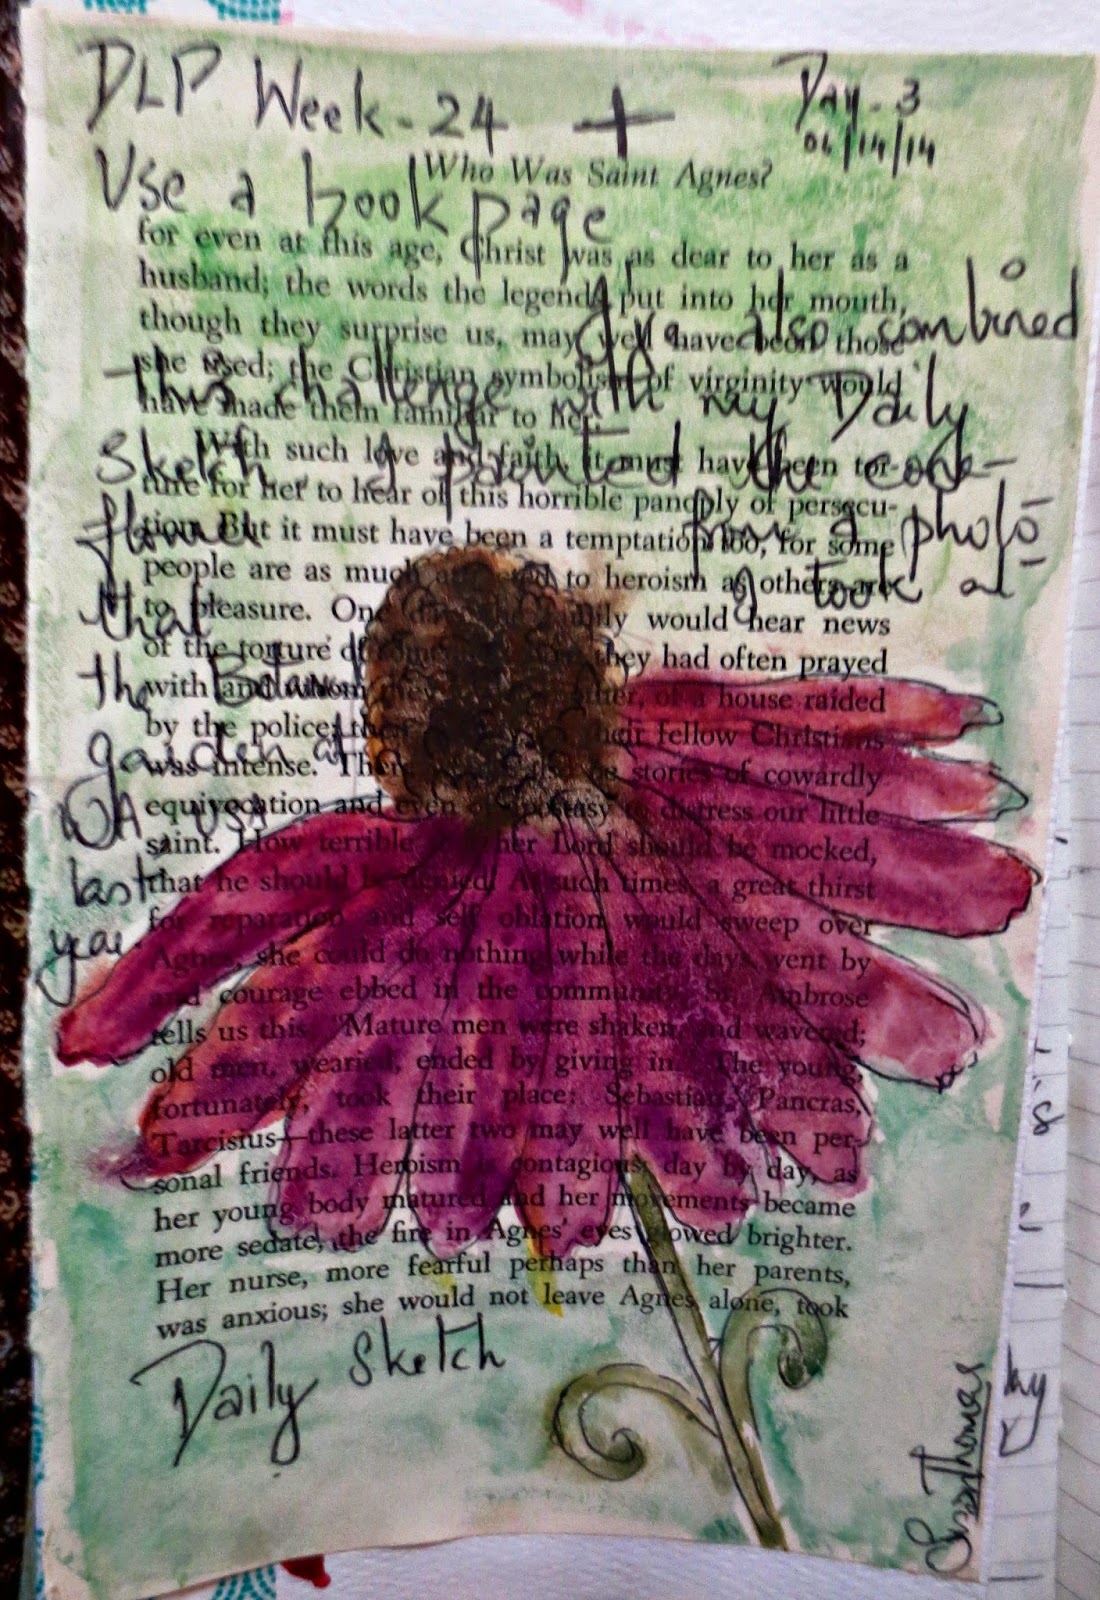 DLP Week - 24 + Day - 3
06/14/14
Who Was Saint Agnes?
Use a book page
for even at this age, Christ was as dear to her as a
husband; the words the legends put into her mouth,
though they surprise us, may well have been those
she used; the Christian symbolism of virginity would
have made them familiar to her.
With such love and faith, it must have been tor-
ture for her to hear of this horrible panoply of persecu-
tion. But it must have been a temptation too, for some
people are as much attracted to heroism as others are
to pleasure. One day the family would hear news
of the torture of someone they had often prayed
with and whom they of a house raided
by the police; their fellow Christians
was intense. There stories of cowardly
equivocation and even of apostasy to distress our little
saint. How terrible if her Lord should be mocked,
that he should be denied. At such times, a great thirst
for reparation and self oblation would sweep over
Agnes, she could do nothing while the days went by
and courage ebbed in the community. St. Ambrose
tells us this. "Mature men were shaken and wavered;
old men, wearied, ended by giving in." The young,
fortunately, took their place: Sebastian, Pancras,
Tarcisius—these latter two may well have been per-
sonal friends. Heroism is contagious; day by day, as
her young body matured and her movements became
more sedate, the fire in Agnes' eyes glowed brighter.
Her nurse, more fearful perhaps than her parents,
was anxious; she would not leave Agnes alone, took
I've also combined
this challenge with my Daily
Sketch. I painted the cone-
flower from a photo
that I took at
the Botanical
garden at
WA USA
last
year.
Daily Sketch
Susan Thomas